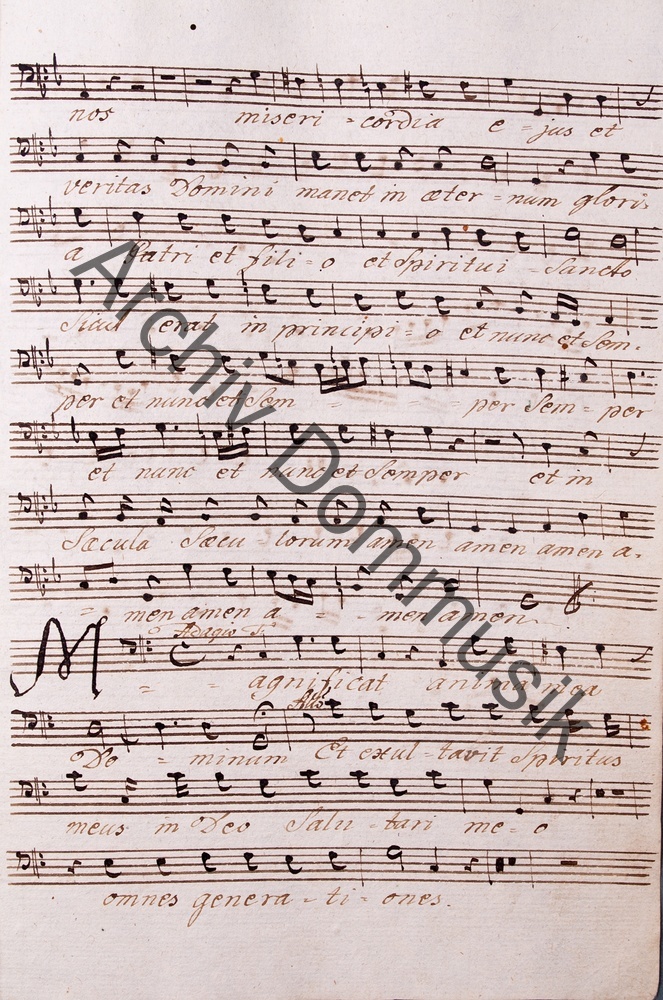 nos miseri - cordia e - jus et
veritas Domini manet in æter - num glori
a Patri et fili - o et Spiritui - Sancto
Sicut erat in principi - o et nunc et Sem -
per et nunc et Sem - - - per Sem - per
et nunc et nunc et Semper et in
Sæcula Sæcu - lorum amen amen amen a -
- men amen a - - men amen
Adagio
M - - agnificat anima mea
Allo
Do - minum Et exul - tavit Spiritus
meus in Deo Salu - tari me - o
omnes genera - ti - ones.
Archiv Dommusik